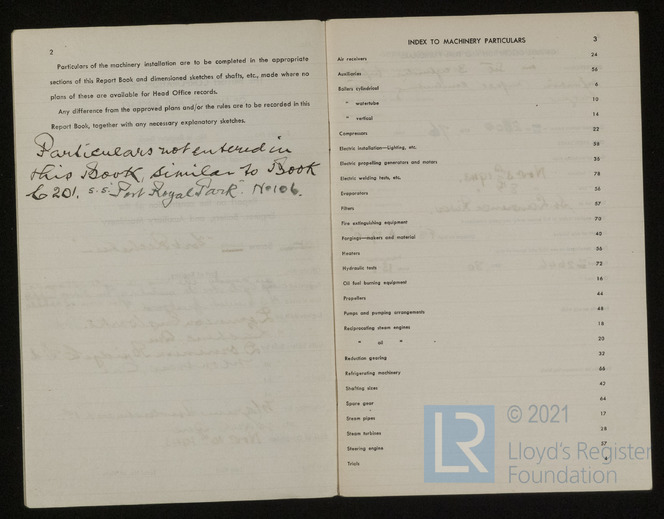 2
Particulars of the machinery installation are to be completed in the appropriate
sections of this Report Book and dimensioned sketches of shafts, etc., made where no
plans of these are available for Head Office records.
Any difference from the approved plans and/or the rules are to be recorded in this
Report Book, together with any necessary explanatory sketches.
Particulars not entered in
this Book, similar to Book
6201. S.S. "Fort Royal Park". No 106.
INDEX TO MACHINERY PARTICULARS 3
Air receivers 24
Auxiliaries 56
Boilers cylindrical 6
" watertube 10
" vertical 14
Compressors 22
Electric installation—Lighting, etc. 58
Electric propelling generators and motors 35
Electric welding tests, etc. 78
Evaporators 56
Filters 57
Fire extinguishing equipment 70
Forgings—makers and material 42
Heaters 56
Hydraulic tests 72
Oil fuel burning equipment 16
Propellers 44
Pumps and pumping arrangements 48
Reciprocating steam engines 18
" oil " 20
Reduction gearing 32
Refrigerating machinery 66
Shafting sizes 42
Spare gear 64
Steam pipes 17
Steam turbines 28
Steering engine 57
Trials
LR © 2021
Lloyd's Register
Foundation